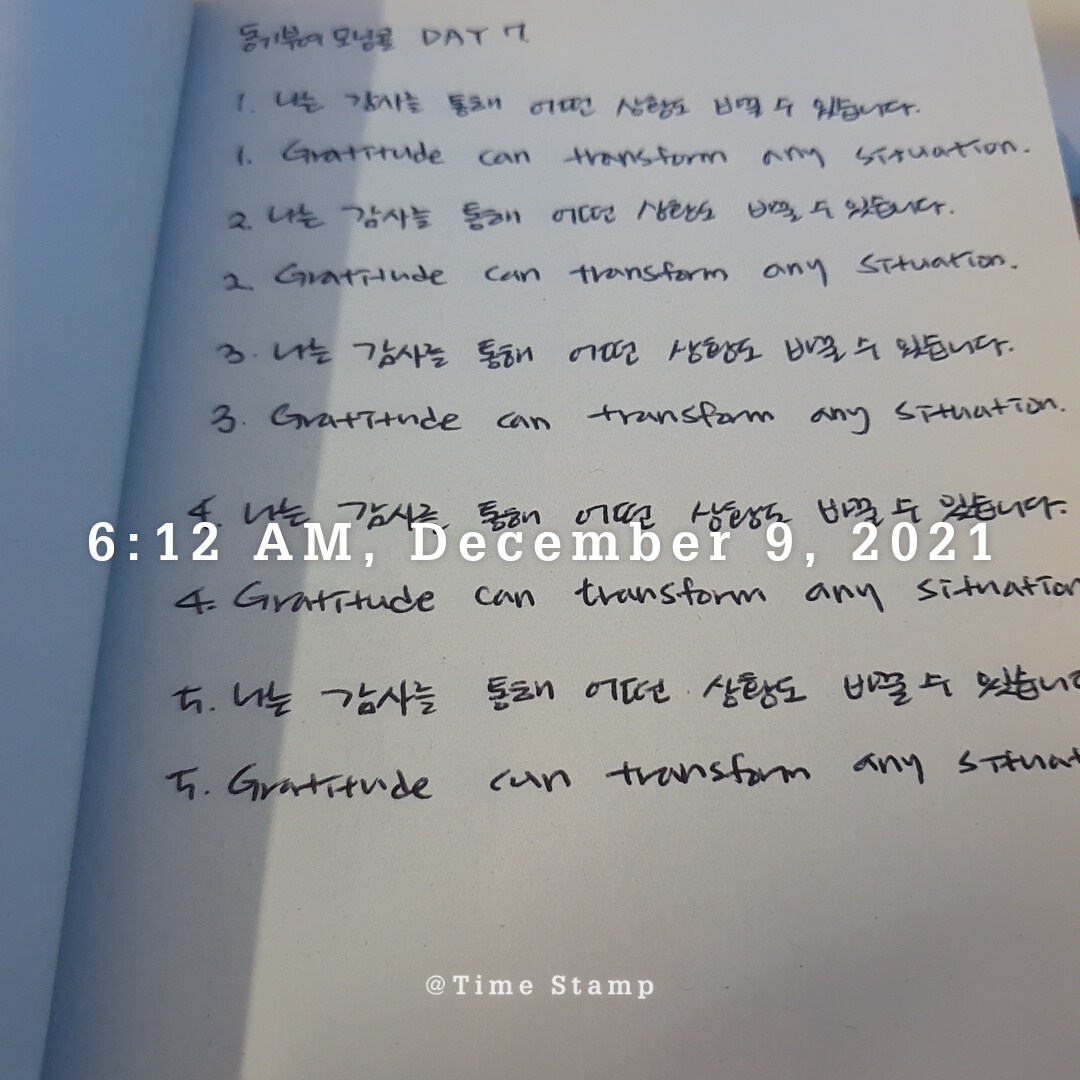 동기부여 모닝콜 DAY 7
1. 나는 감사를 통해 어떤 상황도 바꿀 수 있습니다.
1. Gratitude can transform any situation.
2. 나는 감사를 통해 어떤 상황도 바꿀 수 있습니다.
2. Gratitude can transform any situation.
3. 나는 감사를 통해 어떤 상황도 바꿀 수 있습니다.
3. Gratitude can transform any situation.
4. 나는 감사를 통해 어떤 상황도 바꿀 수 있습니다.
6:12 AM, December 9, 2021
4. Gratitude can transform any situation
5. 나는 감사를 통해 어떤 상황도 바꿀 수 있습니
5. Gratitude can transform any situat
@Time Stamp